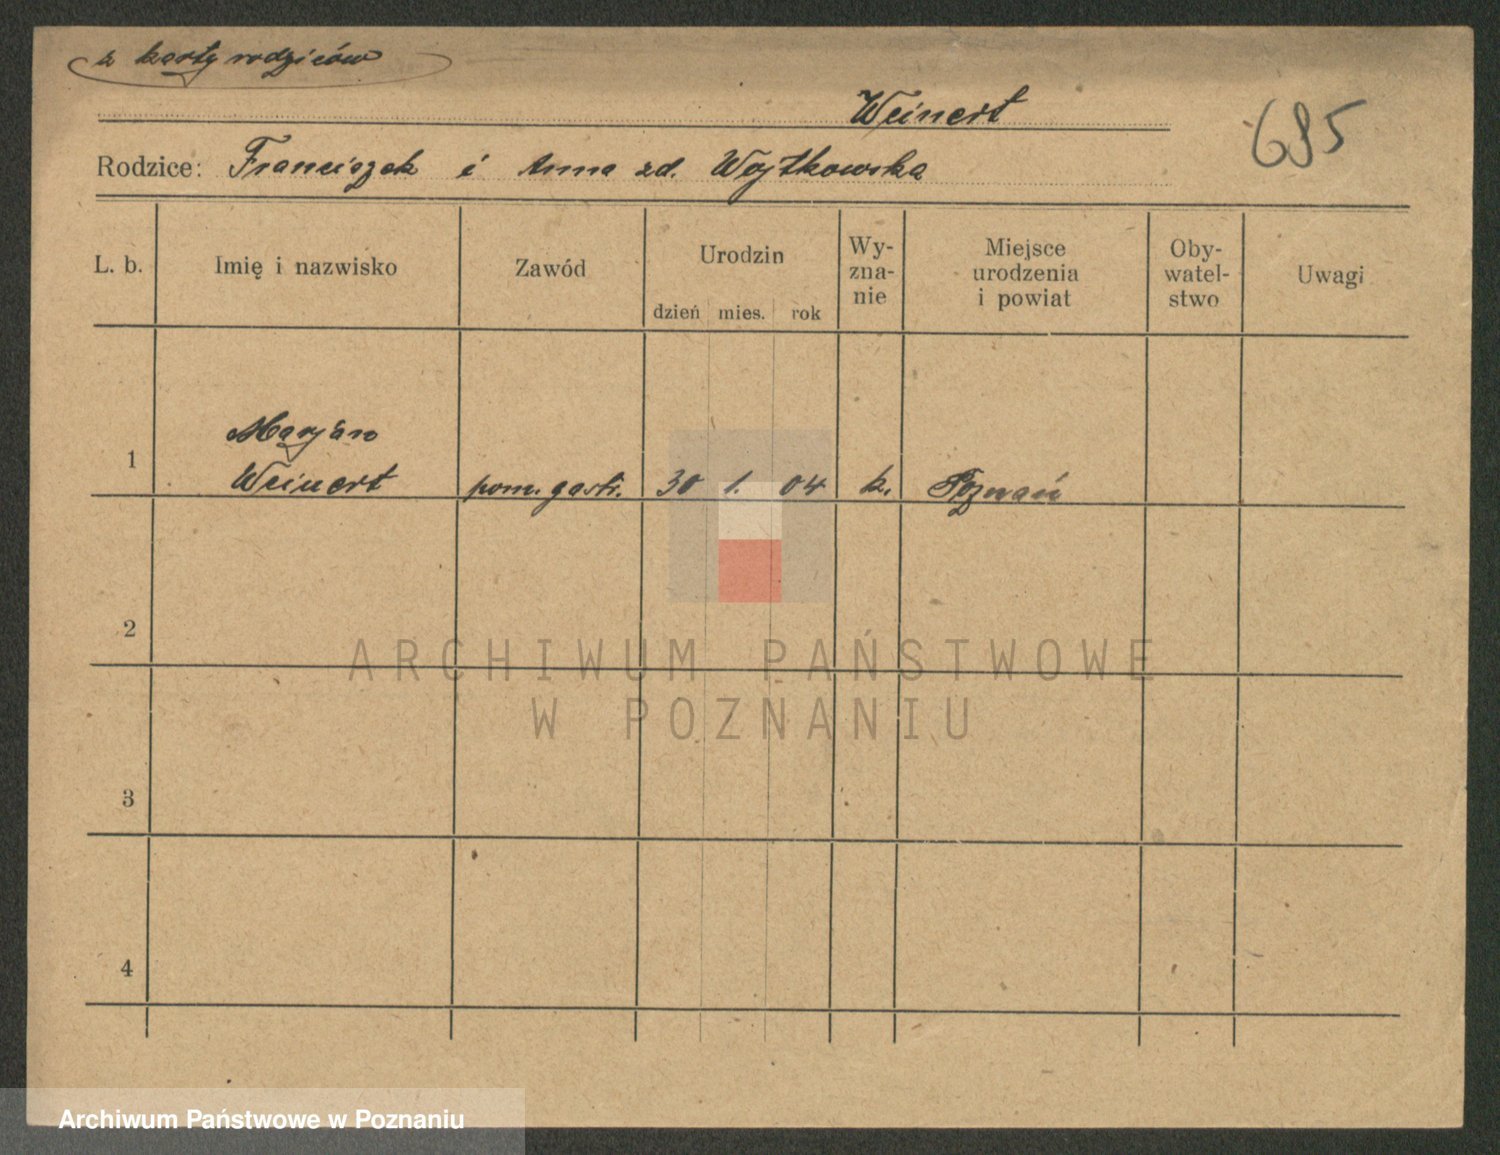 z karty rodziców
Weinert
695
Rodzice: Franciszek i Anna zd. Wojtkowska
L. b. Imię i nazwisko Zawód Urodzin Wy-zna-nie Miejsce urodzenia i powiat Oby-watel-stwo Uwagi
dzień mies. rok
Marjan
1 Weinert pom. gastr. 30 1. 04 k. Poznań
2
ARCHIWUM PAŃSTWOWE
W POZNANIU
3
4
Archiwum Państwowe w Poznaniu